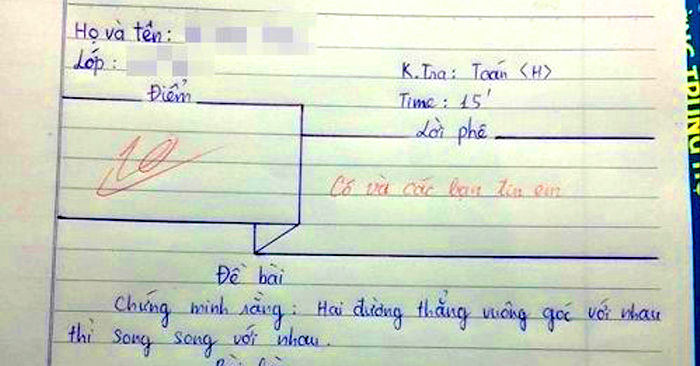 Họ và tên:
Lớp:
K.Tra: Toán <H>
Time: 15'
Điểm
Lời phê
10
Cô và các bạn tin em
Đề bài
Chứng minh rằng: Hai đường thẳng vuông góc với nhau
thì song song với nhau.